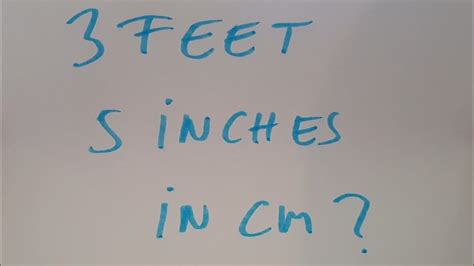 3 FEET
5 INCHES
IN CM?